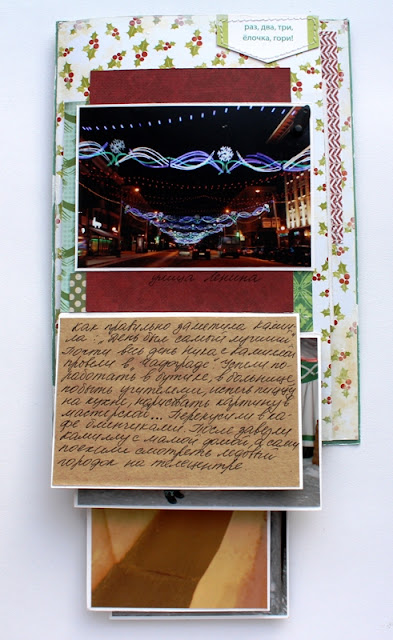 раз, два, три,
ёлочка, гори!
улица Ленина
Как правильно заметила Камил-
ла: "День был самый лучший".
Почти весь день Ника с Камиллой
провели в "Чадограде". Успели по-
работать в бутике, в больнице,
побыть учителями, испечь пиццу
на кухне, нарисовать картину в
мастерской... Перекусили в ка-
фе блинчиками. После завезли
Камиллу с мамой домой, а сами
поехали смотреть ледовый
городок на телецентре